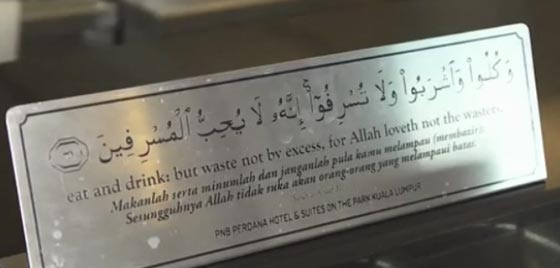 وَكُلُوا۟ وَٱشْرَبُوا۟ وَلَا تُسْرِفُوٓا۟ ۚ إِنَّهُۥ لَا يُحِبُّ ٱلْمُسْرِفِينَ ٣١
eat and drink: but waste not by excess, for Allah loveth not the wasters.
Makanlah serta minumlah dan janganlah pula kamu melampau (membazir).
Sesungguhnya Allah tidak suka akan orang-orang yang melampaui batas.
PNB PERDANA HOTEL & SUITES ON THE PARK KUALA LUMPUR